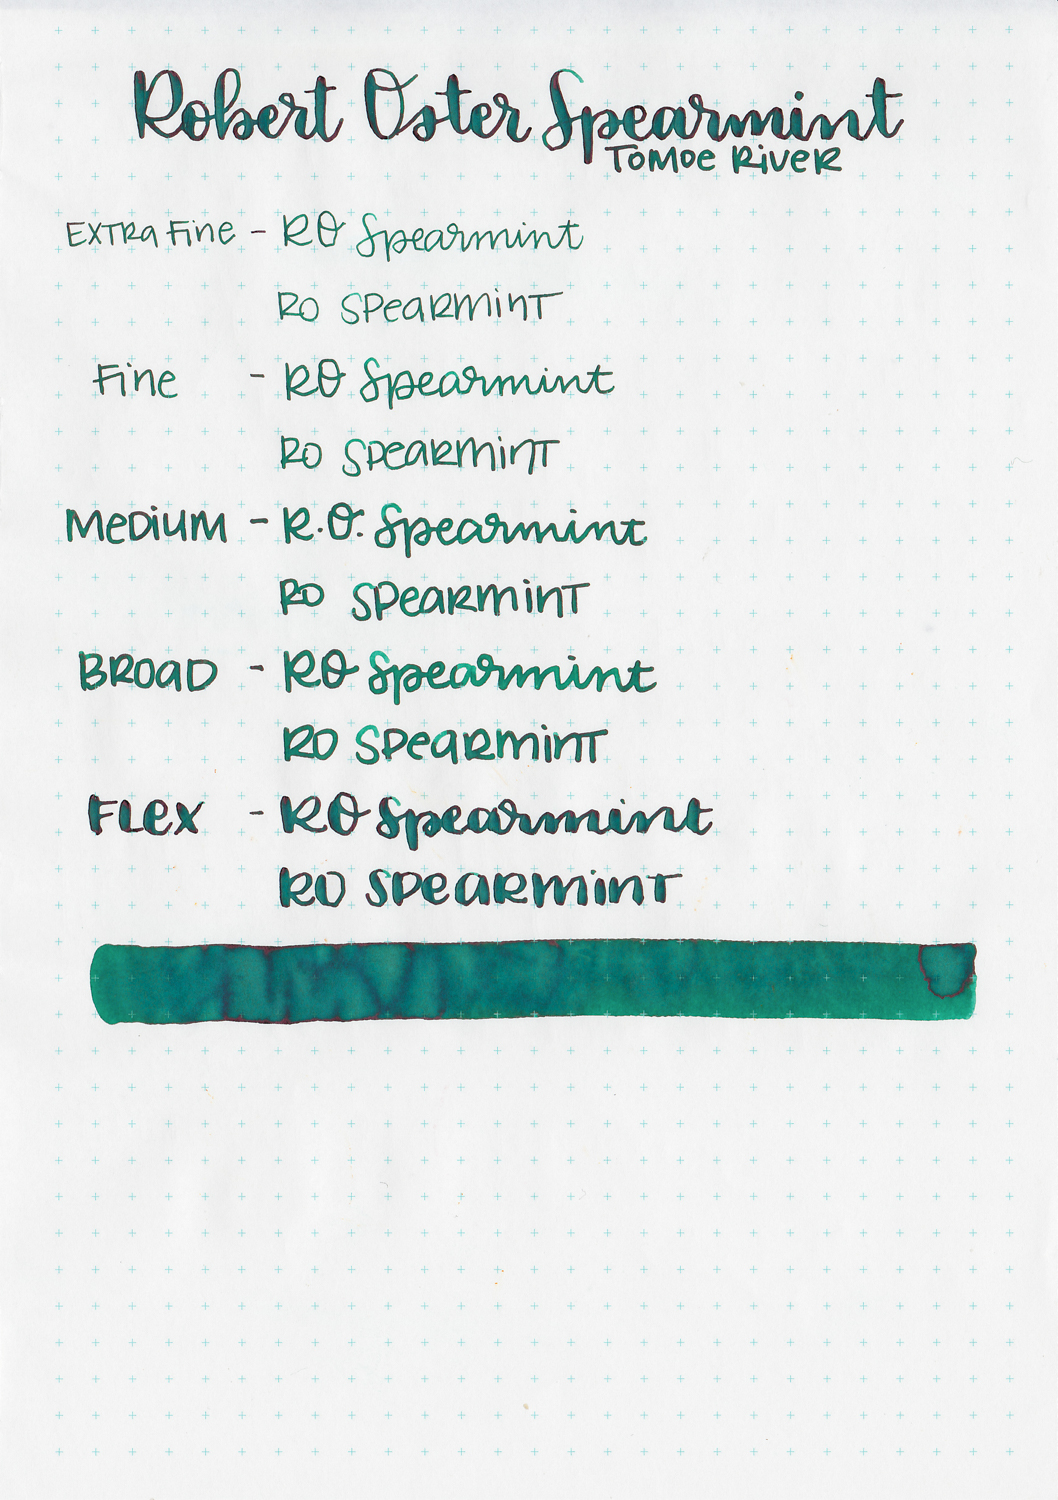 Robert Oster Spearmint
Tomoe River
Extra Fine - RO Spearmint
RO Spearmint
Fine - RO Spearmint
RO Spearmint
Medium - R.O. Spearmint
RO Spearmint
Broad - RO Spearmint
RO Spearmint
Flex - RO Spearmint
RO Spearmint